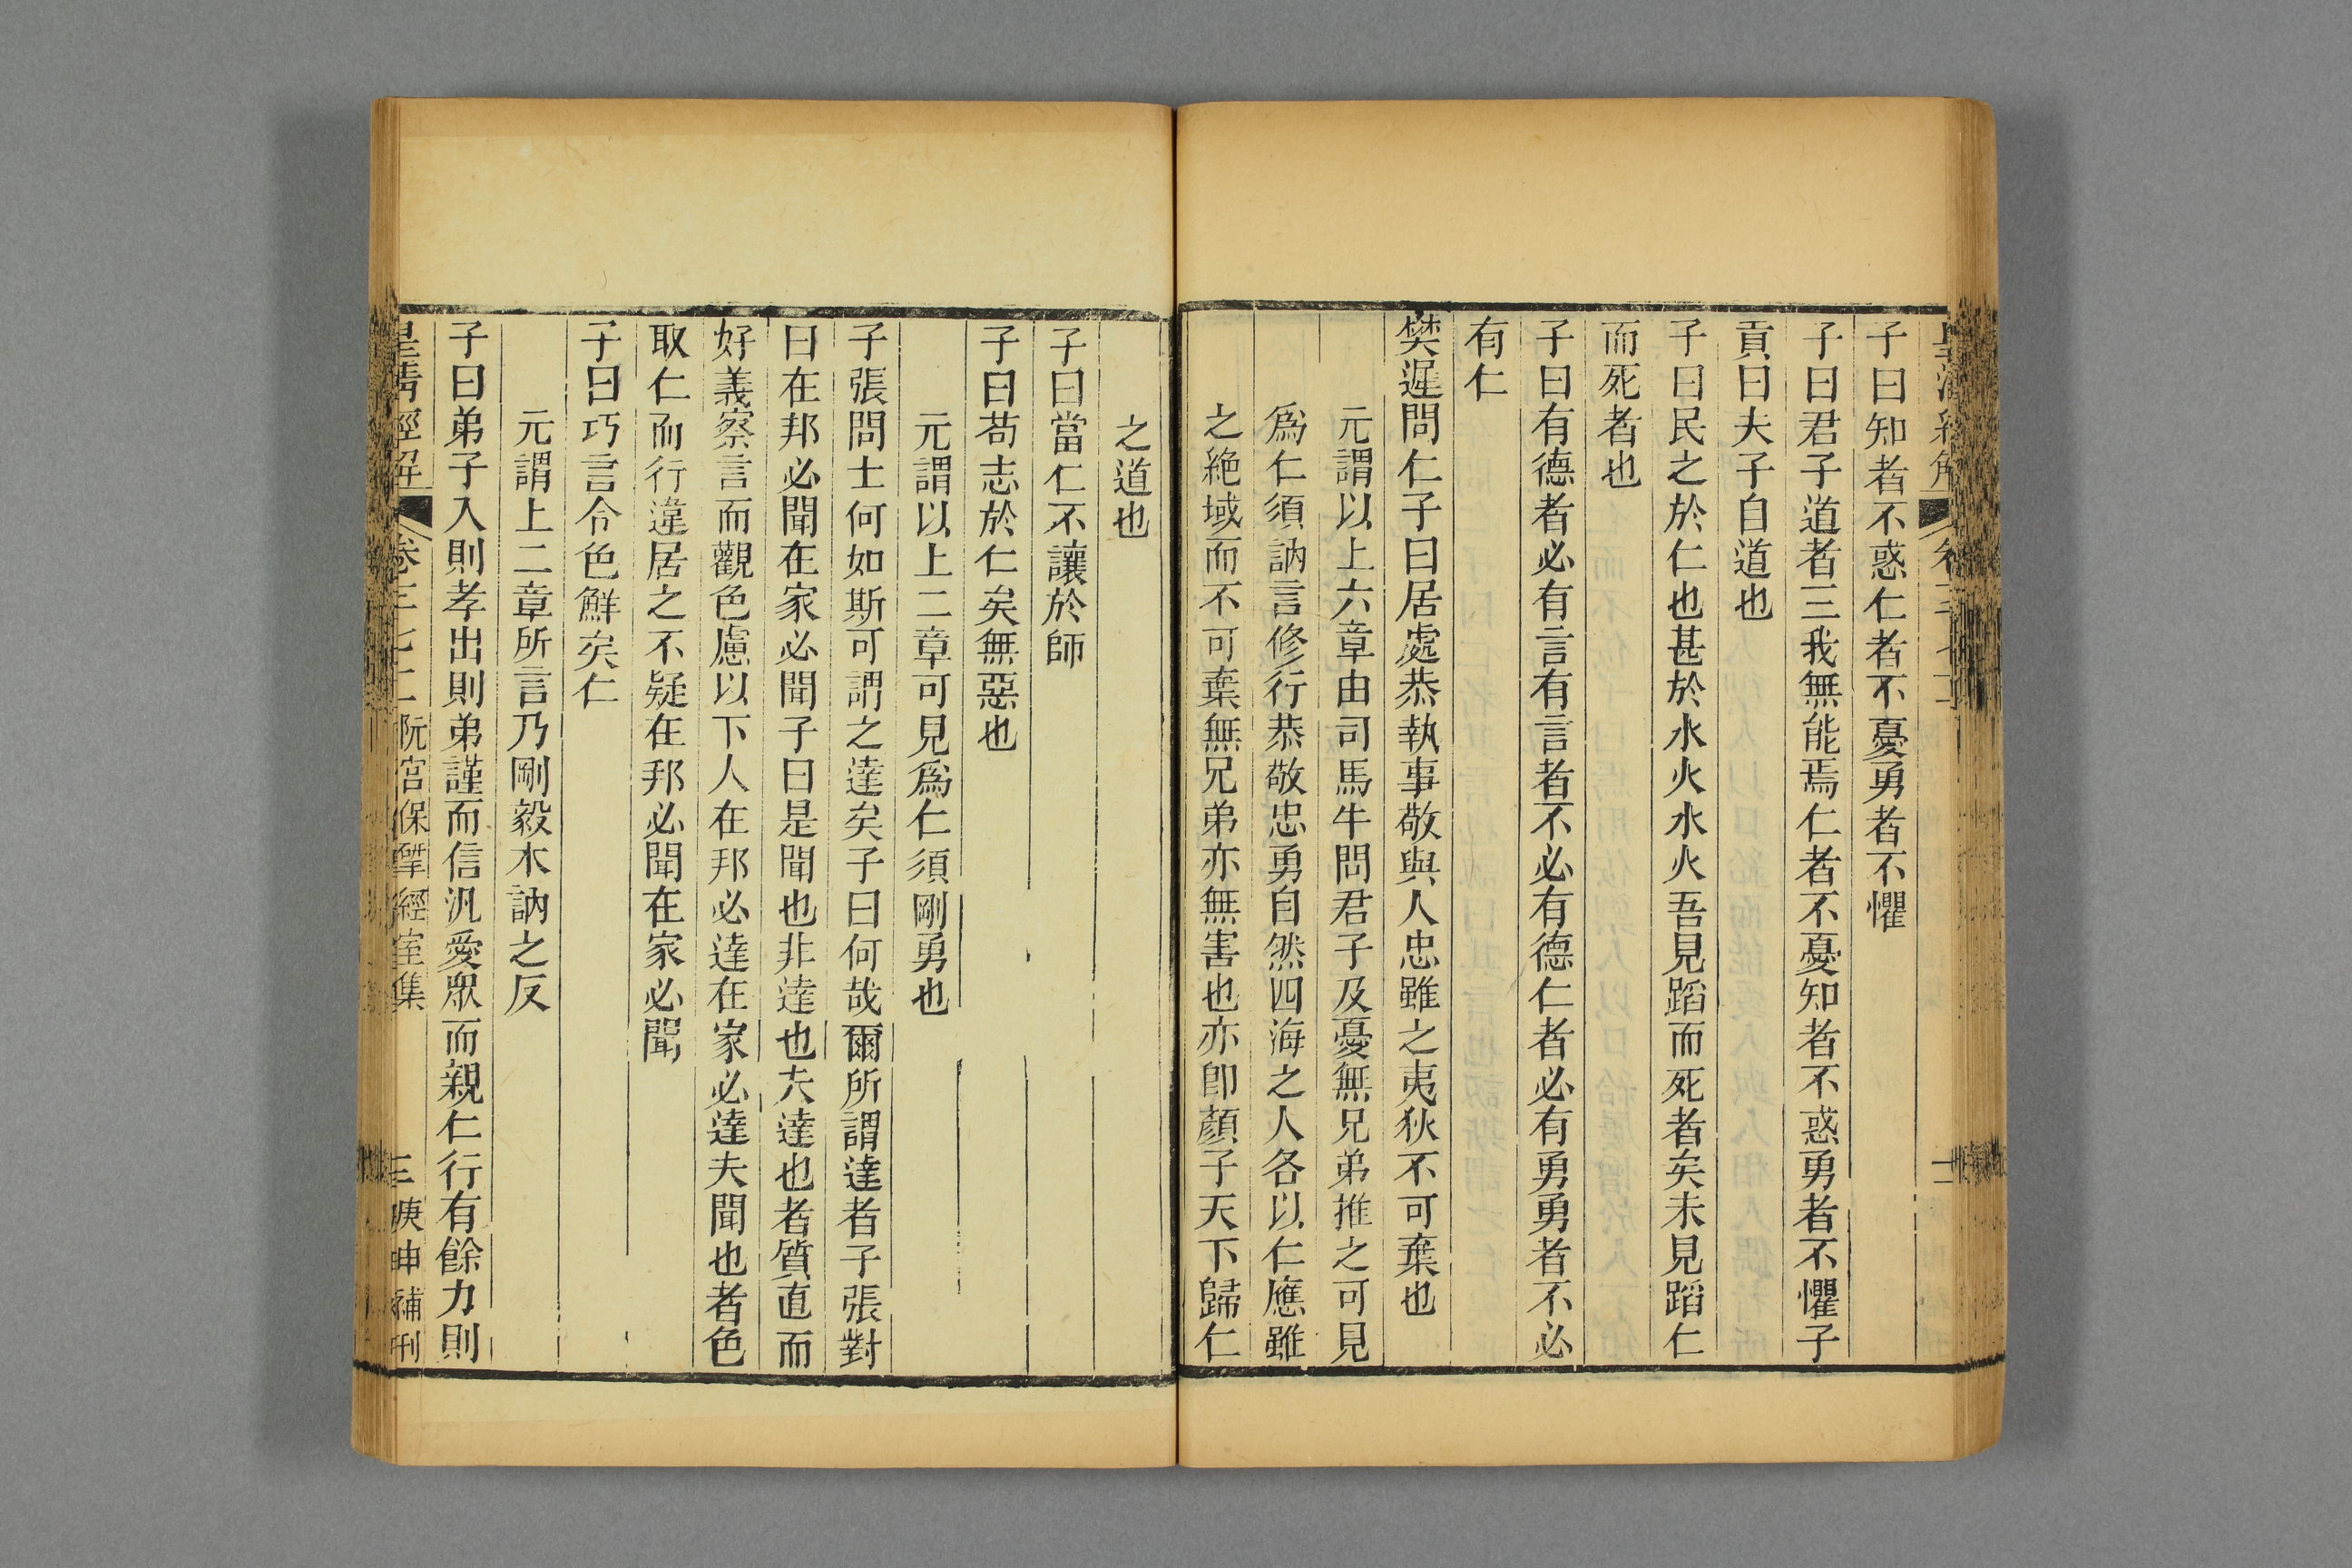 子曰知者不惑仁者不憂勇者不懼
子曰君子道者三我無能焉仁者不憂知者不惑勇者不懼子
貢曰夫子自道也
子曰民之於仁也甚於水火水火吾見蹈而死者矣未見蹈仁
而死者也
子曰有德者必有言有言者不必有德仁者必有勇勇者不必
有仁
樊遲問仁子曰居處恭執事敬與人忠雖之夷狄不可棄也
元謂以上六章由司馬牛問君子及憂無兄弟推之可見
爲仁須訥言修行恭敬忠勇自然四海之人各以仁應雖
之絶域而不可棄無兄弟亦無害也亦卽顏子天下歸仁
之道也
子曰當仁不讓於師
子曰苟志於仁矣無惡也
元謂以上二章可見爲仁須剛勇也
子張問士何如斯可謂之達矣子曰何哉爾所謂達者子張對
曰在邦必聞在家必聞子曰是聞也非達也夫達也者質直而
好義察言而觀色慮以下人在邦必達在家必達夫聞也者色
取仁而行違居之不疑在邦必聞在家必聞
子曰巧言令色鮮矣仁
元謂上二章所言乃剛毅木訥之反
子曰弟子入則孝出則弟謹而信汎愛眾而親仁行有餘力則
皇清經解 卷三七二 阮宮保揅經室集 三 庚申補刊